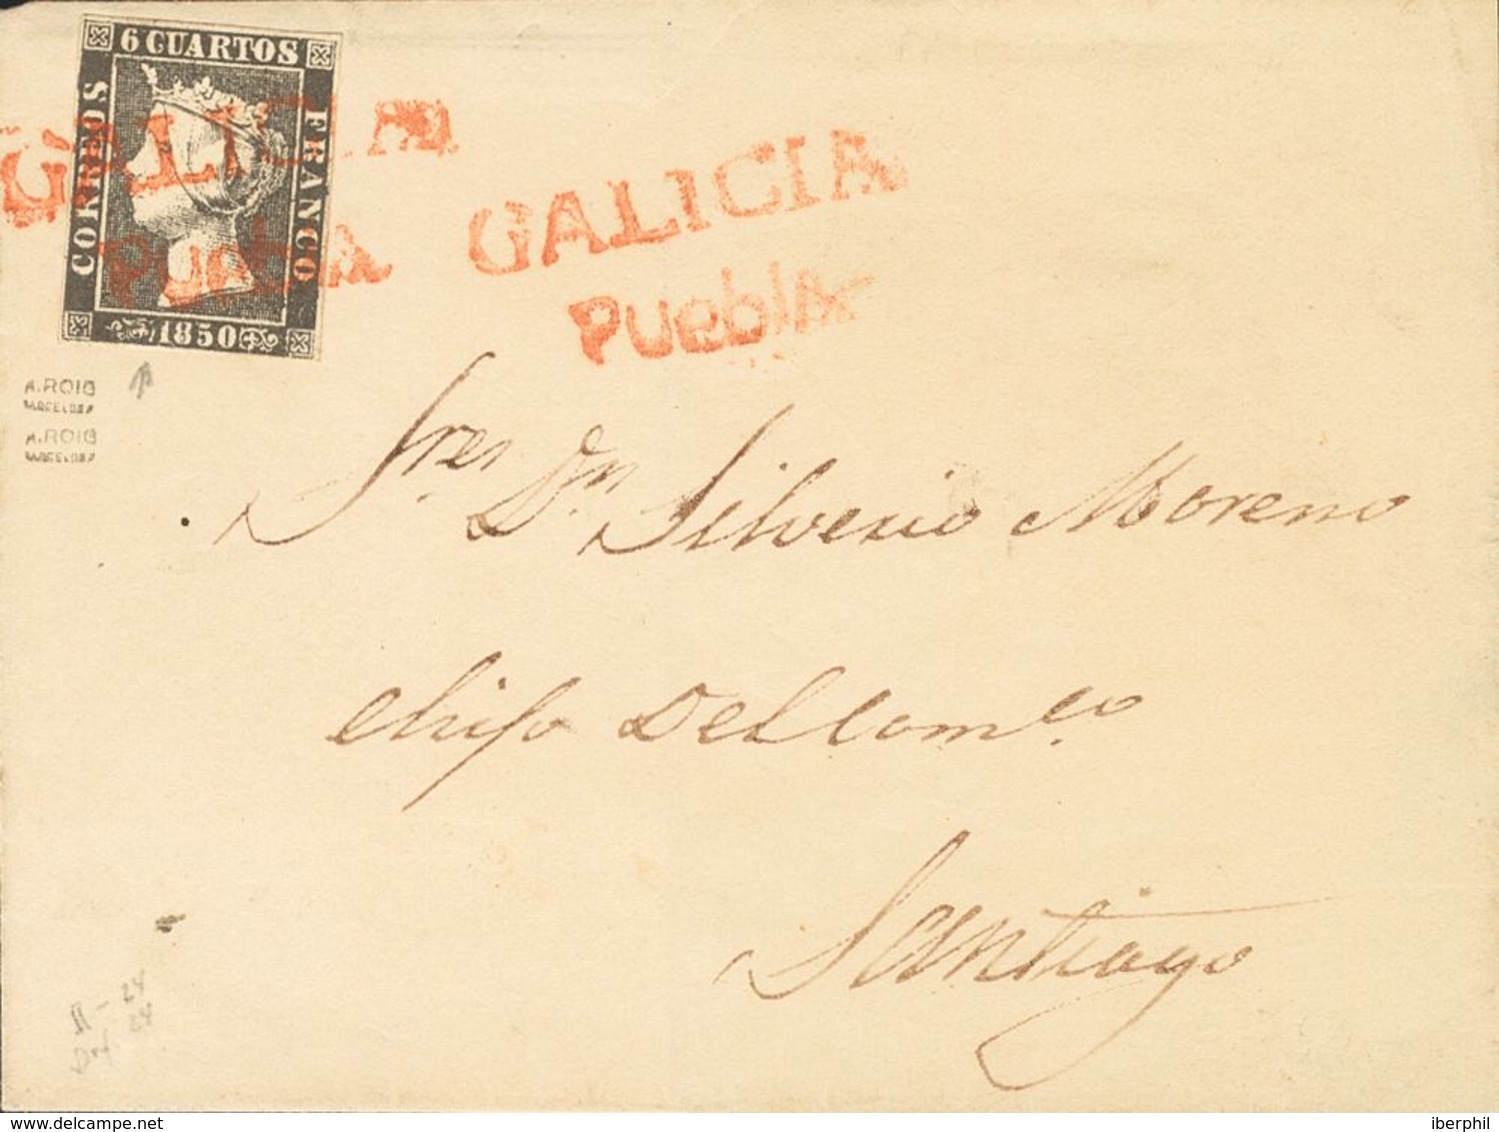 6 CUARTOS
CORREOS
FRANCO
1850
GALICIA
Puebla
GALICIA
Puebla
A.ROIG
BARCELONA
A.ROIG
BARCELONA
Sres. Dn. Silverio Moreno
é hijo Del Comco.
Santiago
24
24
www.delcampe.net
iberphil